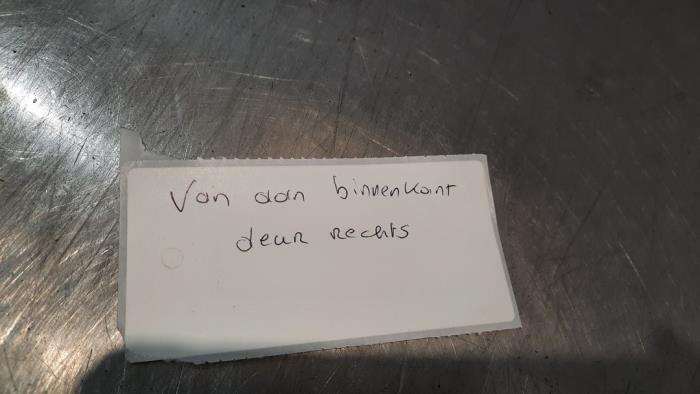 Van aan binnenkant
deur rechts